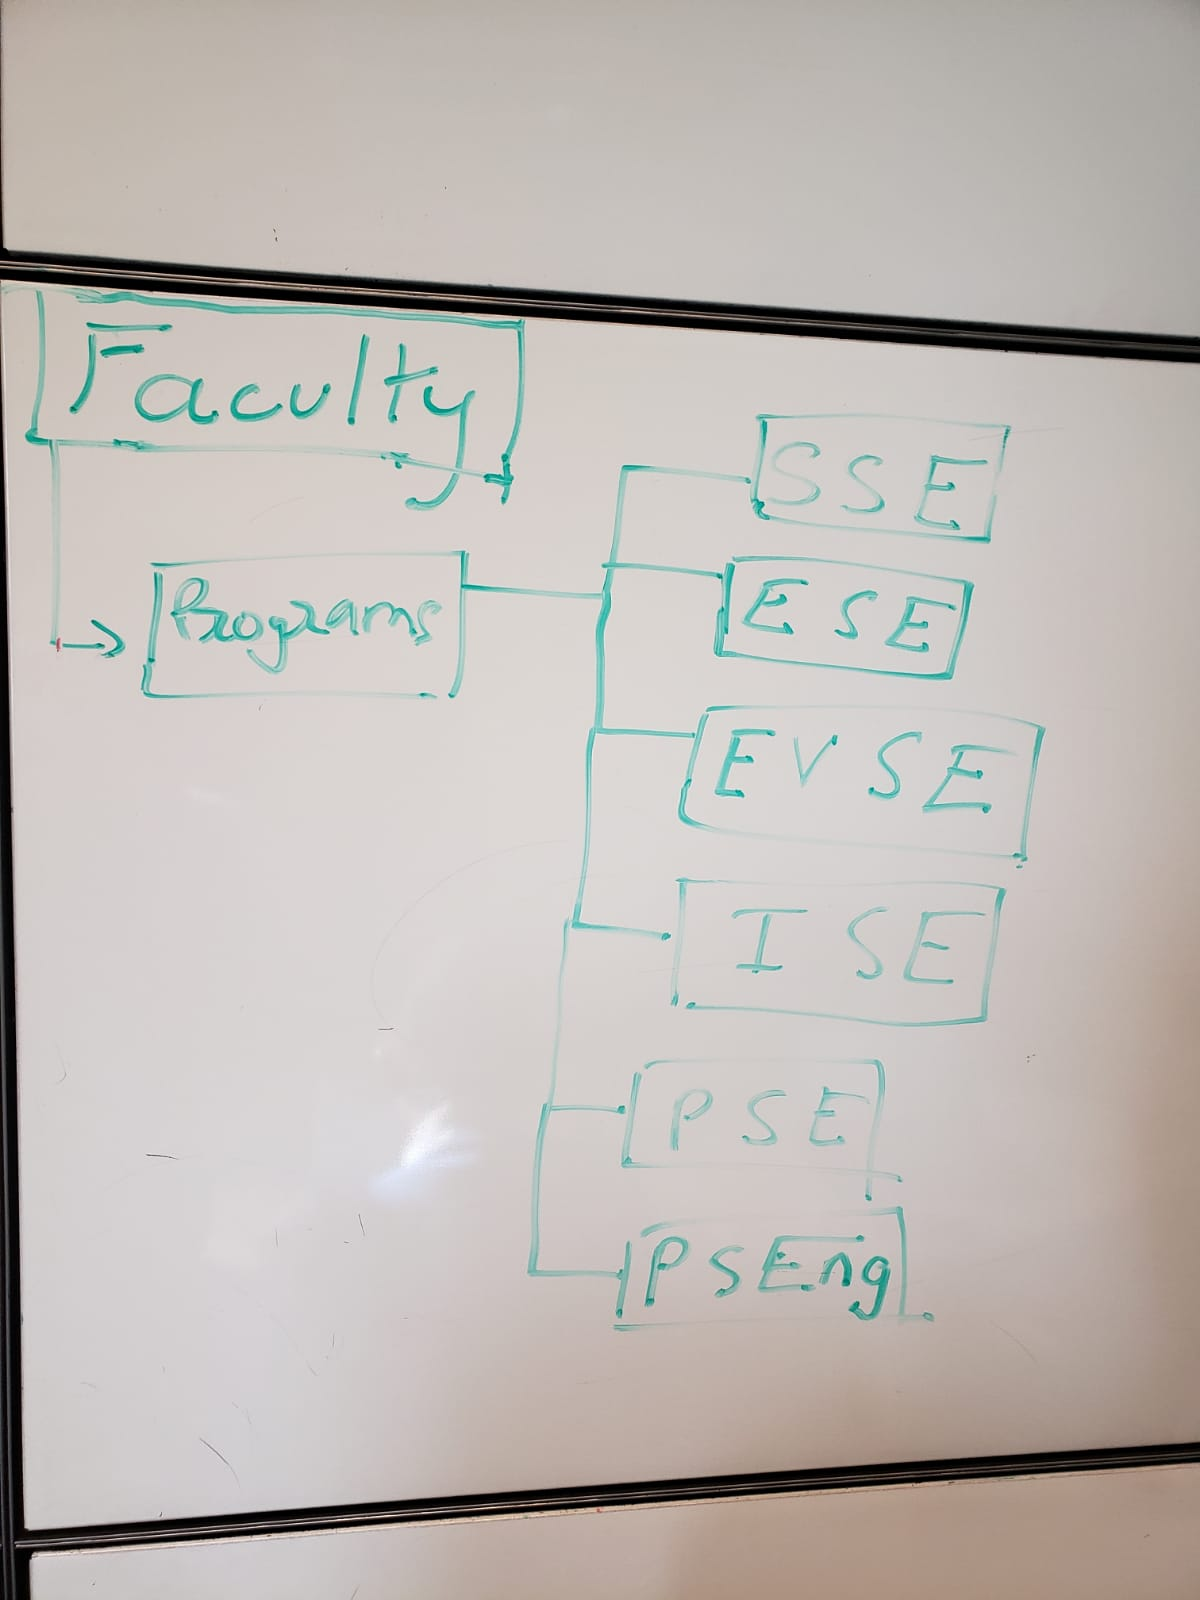 Faculty
Programs
SSE
ESE
EVSE
ISE
PSE
PSEng